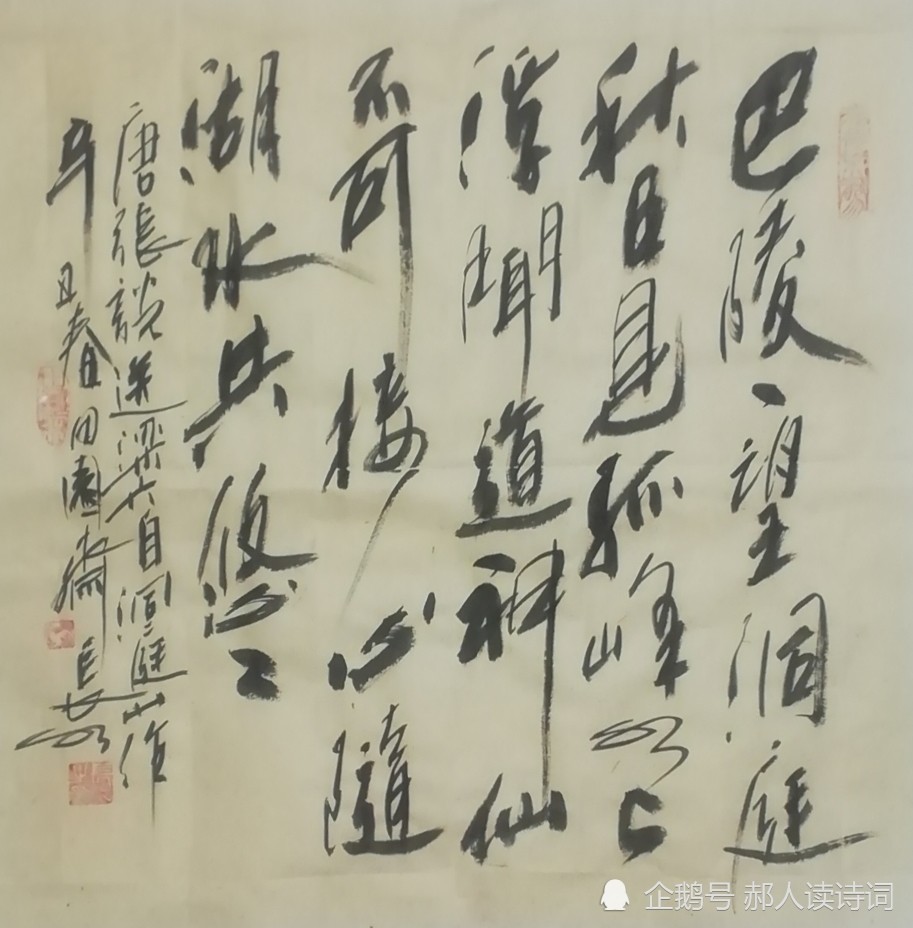 巴陵一望洞庭
秋日見孤峰水上
浮聞道神仙
不可接心隨
湖水共悠〻
唐張說送梁六自洞庭山作
辛丑春田園齋長
企鹅号 郝人读诗词